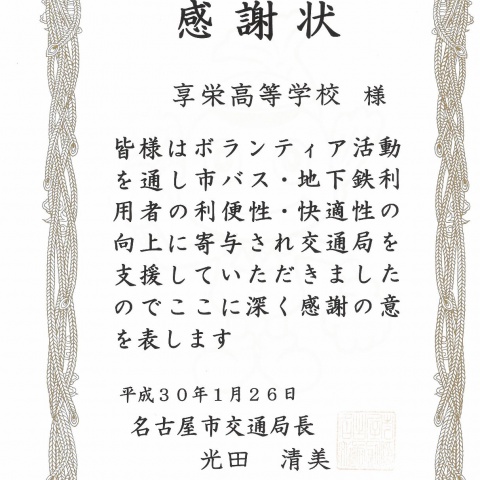 感謝状
享栄高等学校 様
皆様はボランティア活動
を通し市バス・地下鉄利
用者の利便性・快適性の
向上に寄与され交通局を
支援していただきました
のでここに深く感謝の意
を表します
平成30年1月26日
名古屋市交通局長
光田 清美